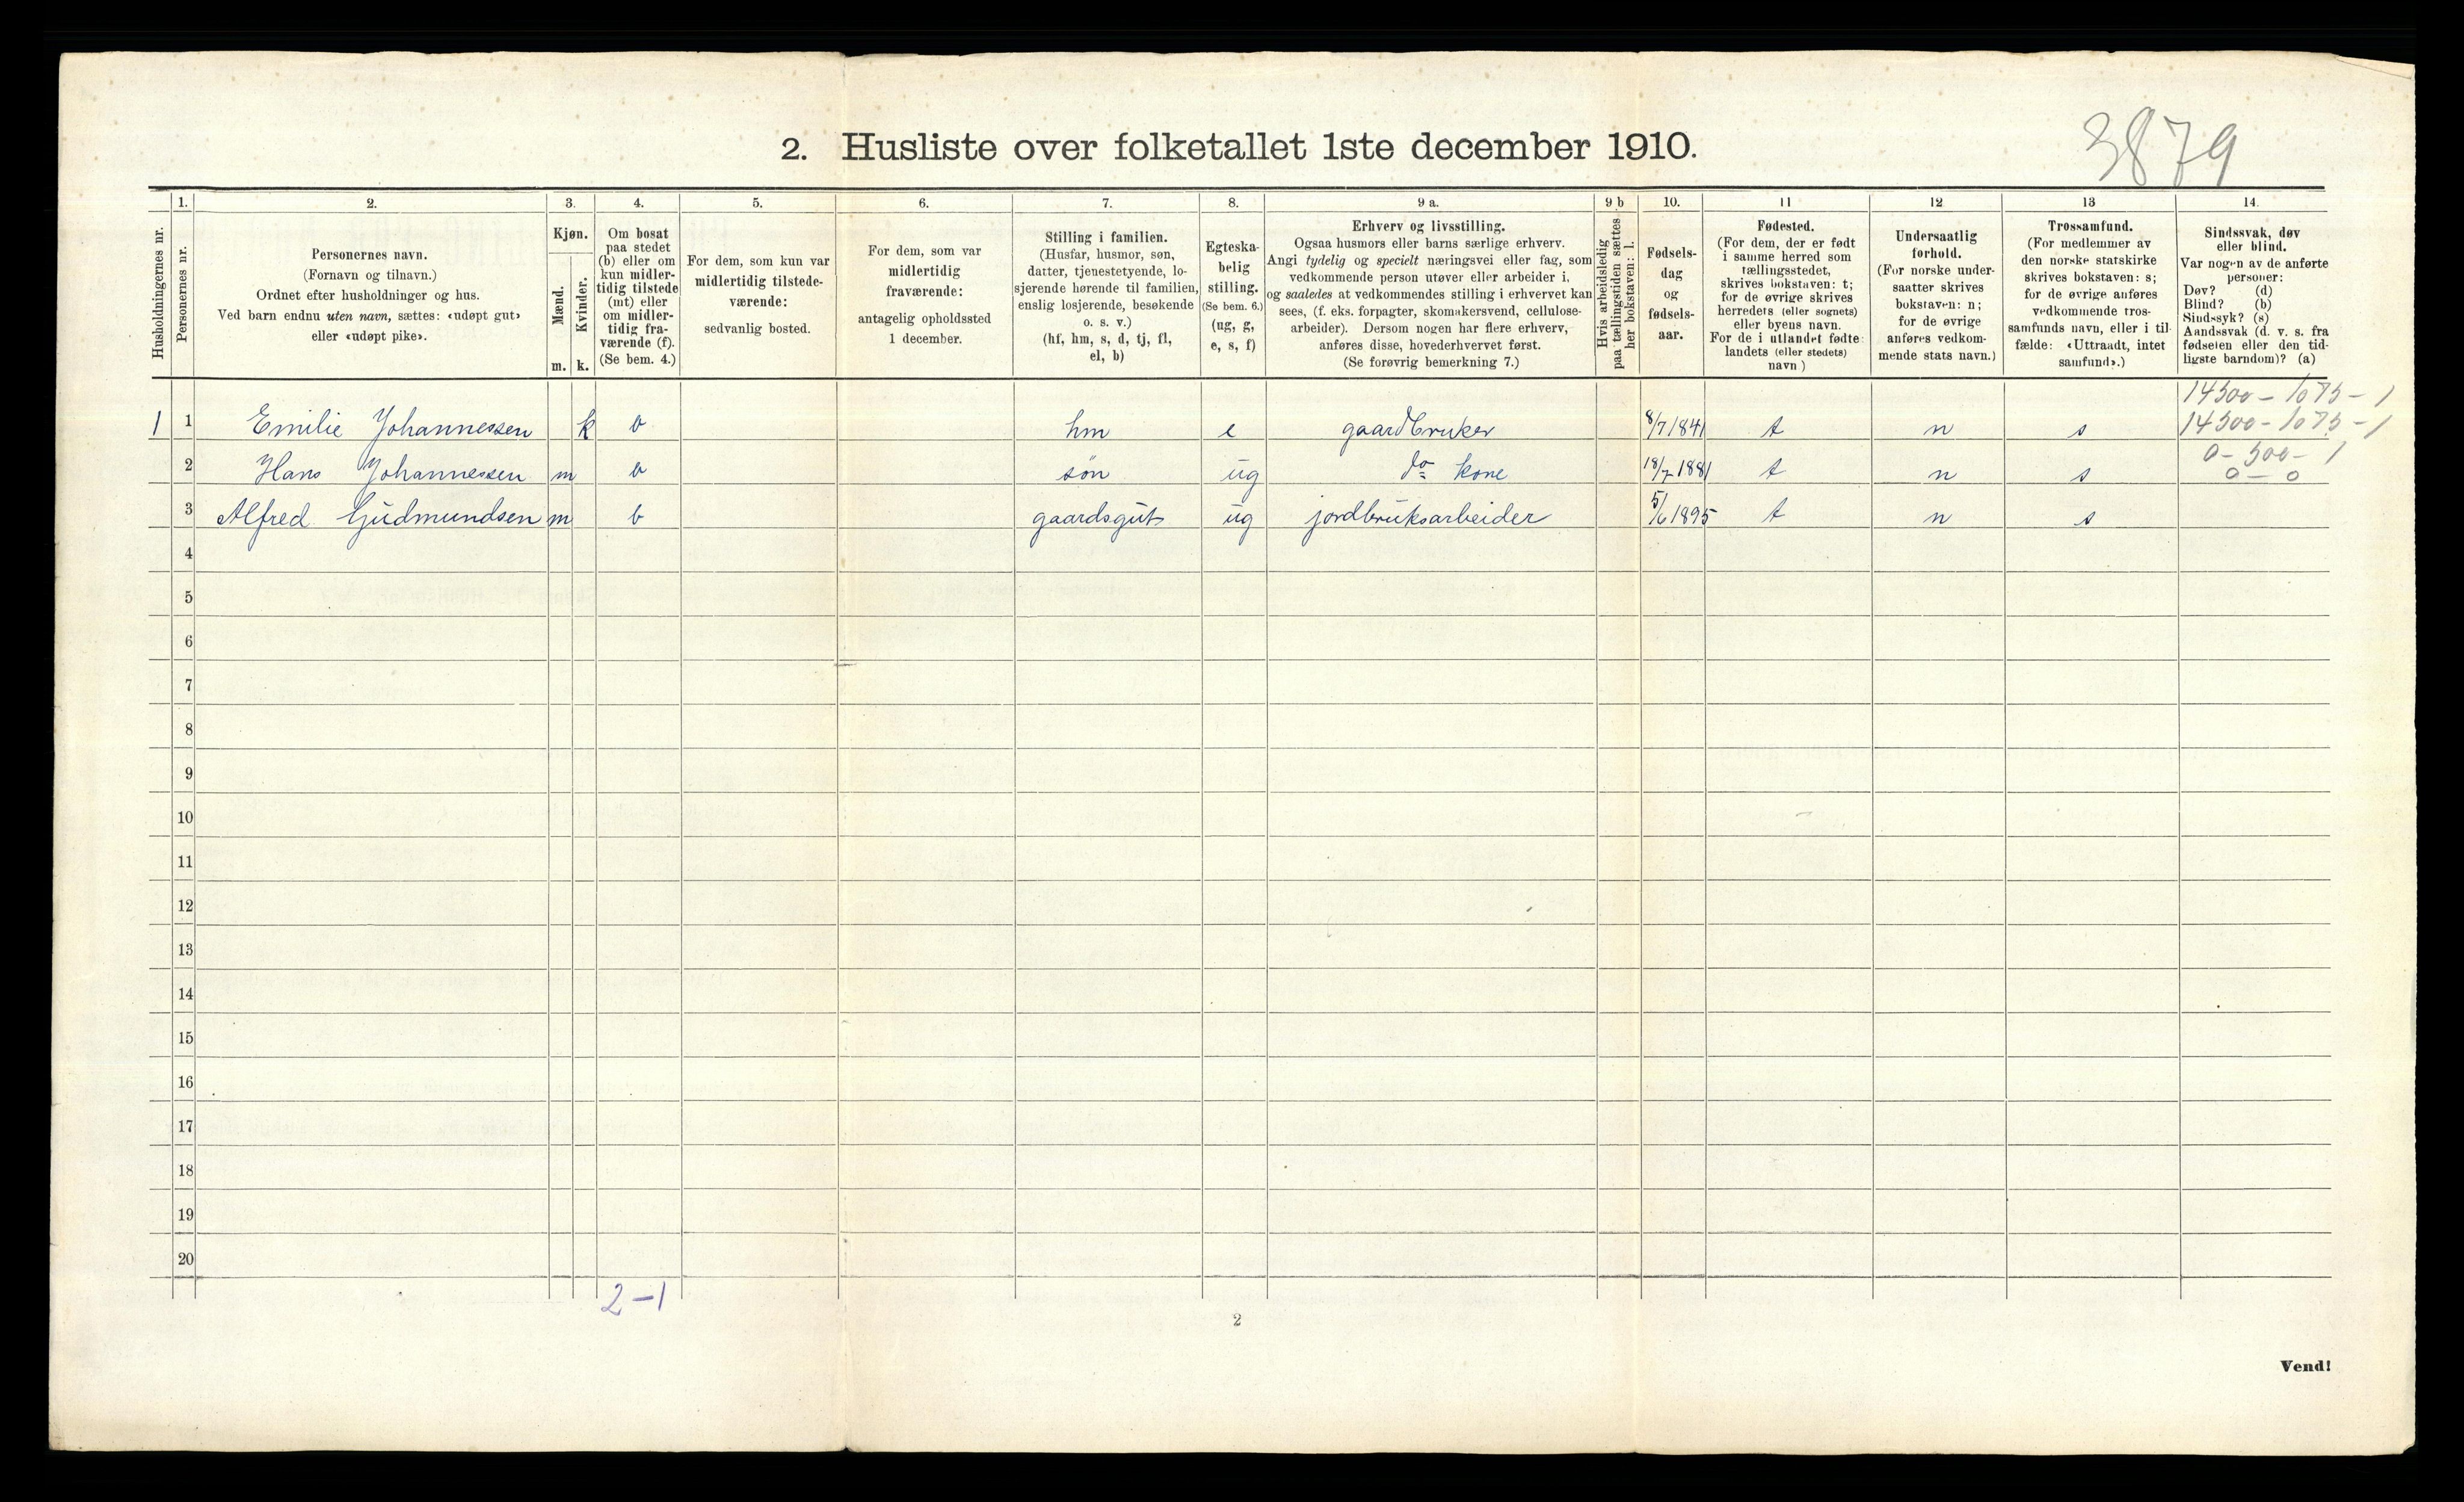 3879
2. Husliste over folketallet 1ste december 1910.
Husholdningernes nr.
1.
Personernes nr.
2.
Personernes navn.
(Fornavn og tilnavn.)
Ordnet efter husholdninger og hus.
Ved barn endnu uten navn, sættes: «udøpt gut»
eller «udøpt pike».
3.
Kjøn.
Mænd.
Kvinder.
m. k.
4.
Om bosat
paa stedet
(b) eller om
kun midler-
tidig tilstede
(mt) eller
om midler-
tidig fra-
værende (f).
(Se bem. 4.)
5.
For dem, som kun var
midlertidig tilstede-
værende:
sedvanlig bosted.
6.
For dem, som var
midlertidig
fraværende:
antagelig opholdssted
1 december.
7.
Stilling i familien.
(Husfar, husmor, søn,
datter, tjenestetyende, lo-
sjerende hørende til familien,
enslig losjerende, besøkende
o. s. v.)
(hf, hm, s, d, tj, fl,
el, b)
8.
Egteska-
belig
stilling.
(Se bem. 6.)
(ug, g,
e, s, f)
9 a.
Erhverv og livsstilling.
Ogsaa husmors eller barns særlige erhverv.
Angi tydelig og specielt næringsvei eller fag, som
vedkommende person utøver eller arbeider i,
og saaledes at vedkommendes stilling i erhvervet kan
sees, (f. eks. forpagter, skomakersvend, cellulose-
arbeider). Dersom nogen har flere erhverv,
anføres disse, hovederhvervet først.
(Se forøvrig bemerkning 7.)
9 b
Hvis arbeidsledig
paa tællingstiden sættes
her bokstaven: l.
10.
Fødsels-
dag
og
fødsels-
aar.
11
Fødested.
(For dem, der er født
i samme herred som
tællingsstedet,
skrives bokstaven: t;
for de øvrige skrives
herredets (eller sognets)
eller byens navn.
For de i utlandet fødte:
landets (eller stedets)
navn )
12
Undersaatlig
forhold.
(For norske under-
saatter skrives
bokstaven: n;
for de øvrige
anføres vedkom-
mende stats navn.)
13
Trossamfund.
(For medlemmer av
den norske statskirke
skrives bokstaven: s;
for de øvrige anføres
vedkommende tros-
samfunds navn, eller i til-
fælde: «Uttraadt, intet
samfund».)
14.
Sindssvak, døv
eller blind.
Var nogen av de anførte
personer:
Døv? (d)
Blind? (b)
Sindssyk? (s)
Aandssvak (d. v. s. fra
fødselen eller den tid-
ligste barndom)? (a)
14500 - 1075 - 1
1 1 Emilie Johannessen k b hm e gaardbruker 8/7 1841 t n s 14500 - 1075 - 1
0 - 500 - 1
2 Hans Johannessen m b søn ug do kone 18/7 1881 t n s 0 - 0
3 Alfred Gudmundsen m b gaardsgut ug jordbruksarbeider 5/6 1895 t n s
4
5
6
7
8
9
10
11
12
13
14
15
16
17
18
19
20
2-1
2
Vend!